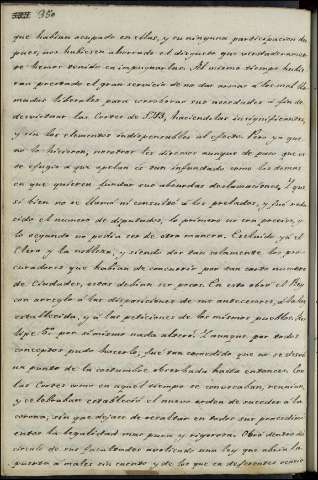 350
que habian ocupado en ellas, y en ninguna participacion de
pues, nos hubiesen ahorrado el disgusto que verdaderamen
te hemos tenido en impugnarlas. Al mismo tiempo hubie
ran prestado el gran servicio de no dar armas a los mal lla
mados liberales para corroborar sus necedades a fin de
desvirtuar las Cortes de haciendolas insignificantes,
y sin los elementos indispensables al efecto. Pero ya que
no lo hicieron, nosotros les diremos aunque de paso que es
te efugio a que apelan es tan infundado como los demas
en que quieren fundar sus absurdas declamaciones. Que
si bien no se llamó ni consultó a los prelados, y fué redu
cido el numero de diputados, lo primero no era preciso, y
lo segundo no podia ser de otra manera. Escluido ya el
Clero y la nobleza, y siendo dos tan solamente los pro
curadores que habian de concurrir por tan corto numero
de Ciudades, estos debian ser pocos. En esto obró el Rey
con arreglo á las disposiciones de sus antecesores, á la ley
establecida, y á las peticiones de los mismos pueblos. Fe
lipe 5º por si mismo nada alteró. Y aunque por todos
conceptos pudo hacerlo, fué tan comedido que no se desvió
un punto de la costumbre observada hasta entonces. Con
las Cortes como en aquel tiempo se convocaban, reunian,
y celebraban estableció el nuevo orden de suceder a la
corona, sin que dejase de resaltar en todos sus procedimi
entos la legalidad mas pura y rigorosa. Obró dentro del
circulo de sus facultades anulando una ley que abria la
puerta a males sin cuento y de los que en diferentes ocasio